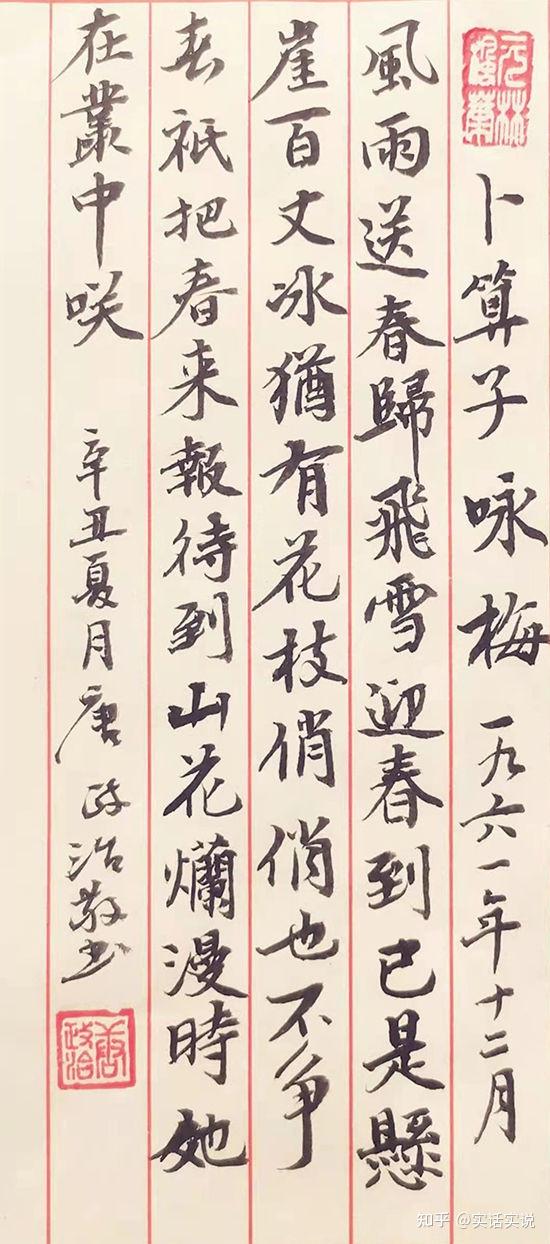 卜算子咏梅 一九六一年十二月
風雨送春歸飛雪迎春到已是懸
崖百丈冰猶有花枝俏俏也不争
春祇把春来報待到山花爛漫時她
在叢中咲 辛丑夏月唐政治敬书
唐政治
知乎 @实话实说